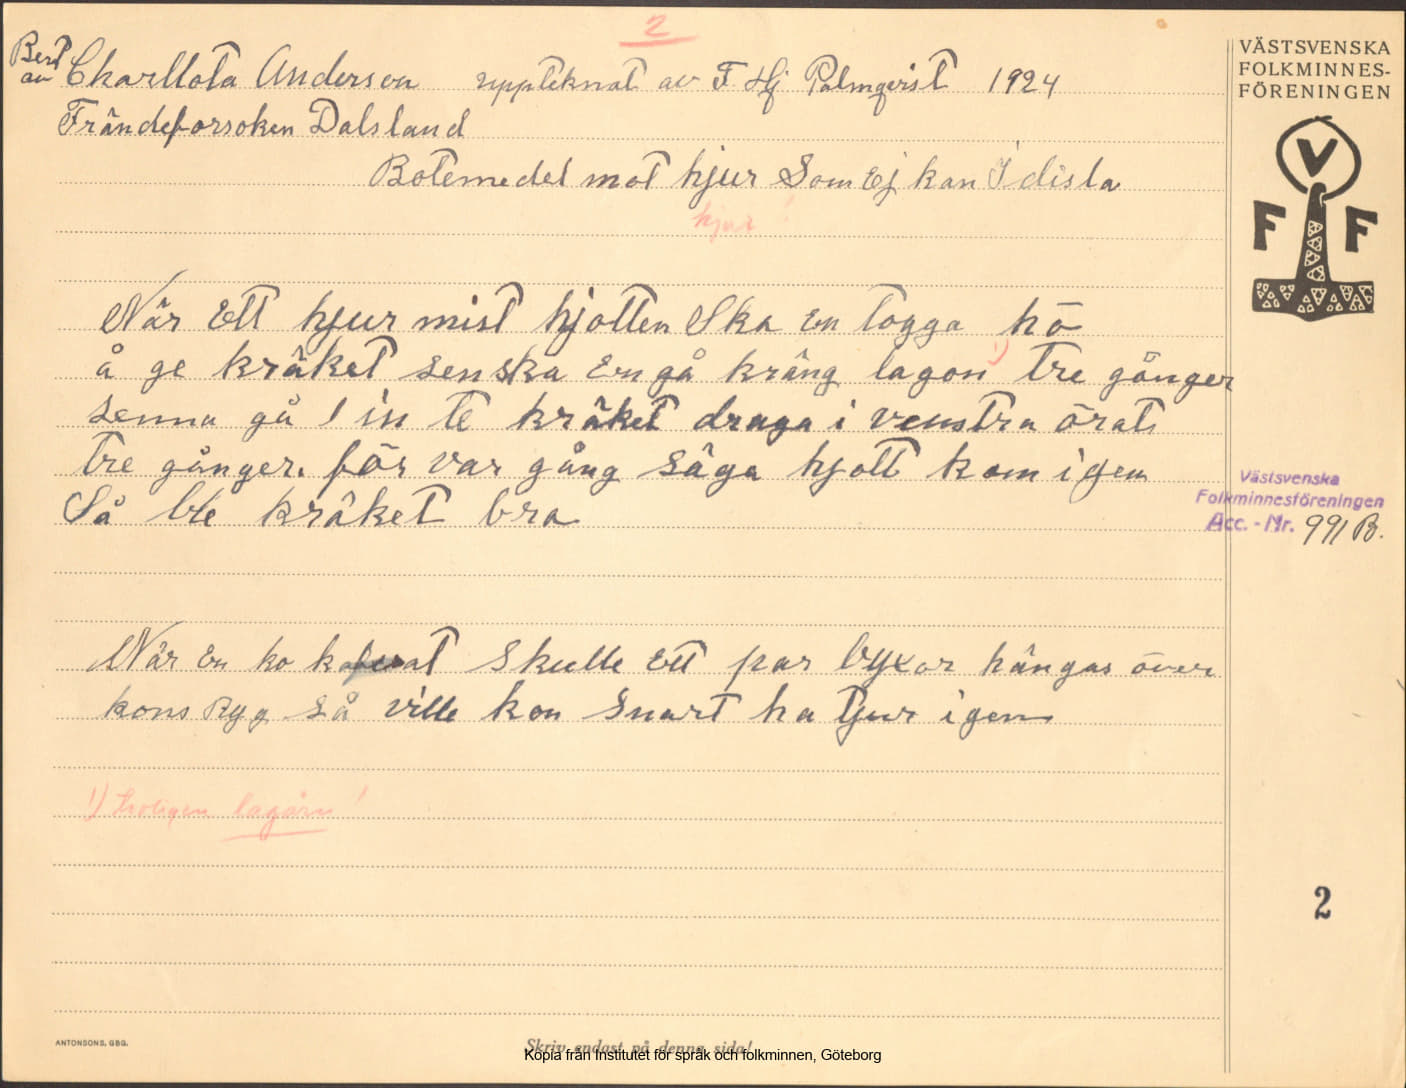 2
Bert
av Charllota Anderson uppteknat av F. Hj Palmqvist 1924
Frändeforsoken Dalsland
Botemedel mot hjur Som Ej kan Idisla
hjur !
När Ett hjur mist hjotten Ska En togga hö
å ge kräket sen ska En gå kräng lagon 1) tre gånger
senna gå in te kräket draga i venstra örat
tre gånger. för var gång säga hjott kom igen
Så ble kräket bra
När En ko skulle Ett par byxor hängas över
kons Rygg så ville kon snart ha tjur igen
1) troligen lagårn !
VÄSTSVENSKA
FOLKMINNES-
FÖRENINGEN
V
F F
Västsvenska
Folkminnesföreningen
Acc. - Nr. 991 B.
2
ANTONSONS, GBG.
Skriv endast på denna sida!
Kopia från Institutet för språk och folkminnen, Göteborg